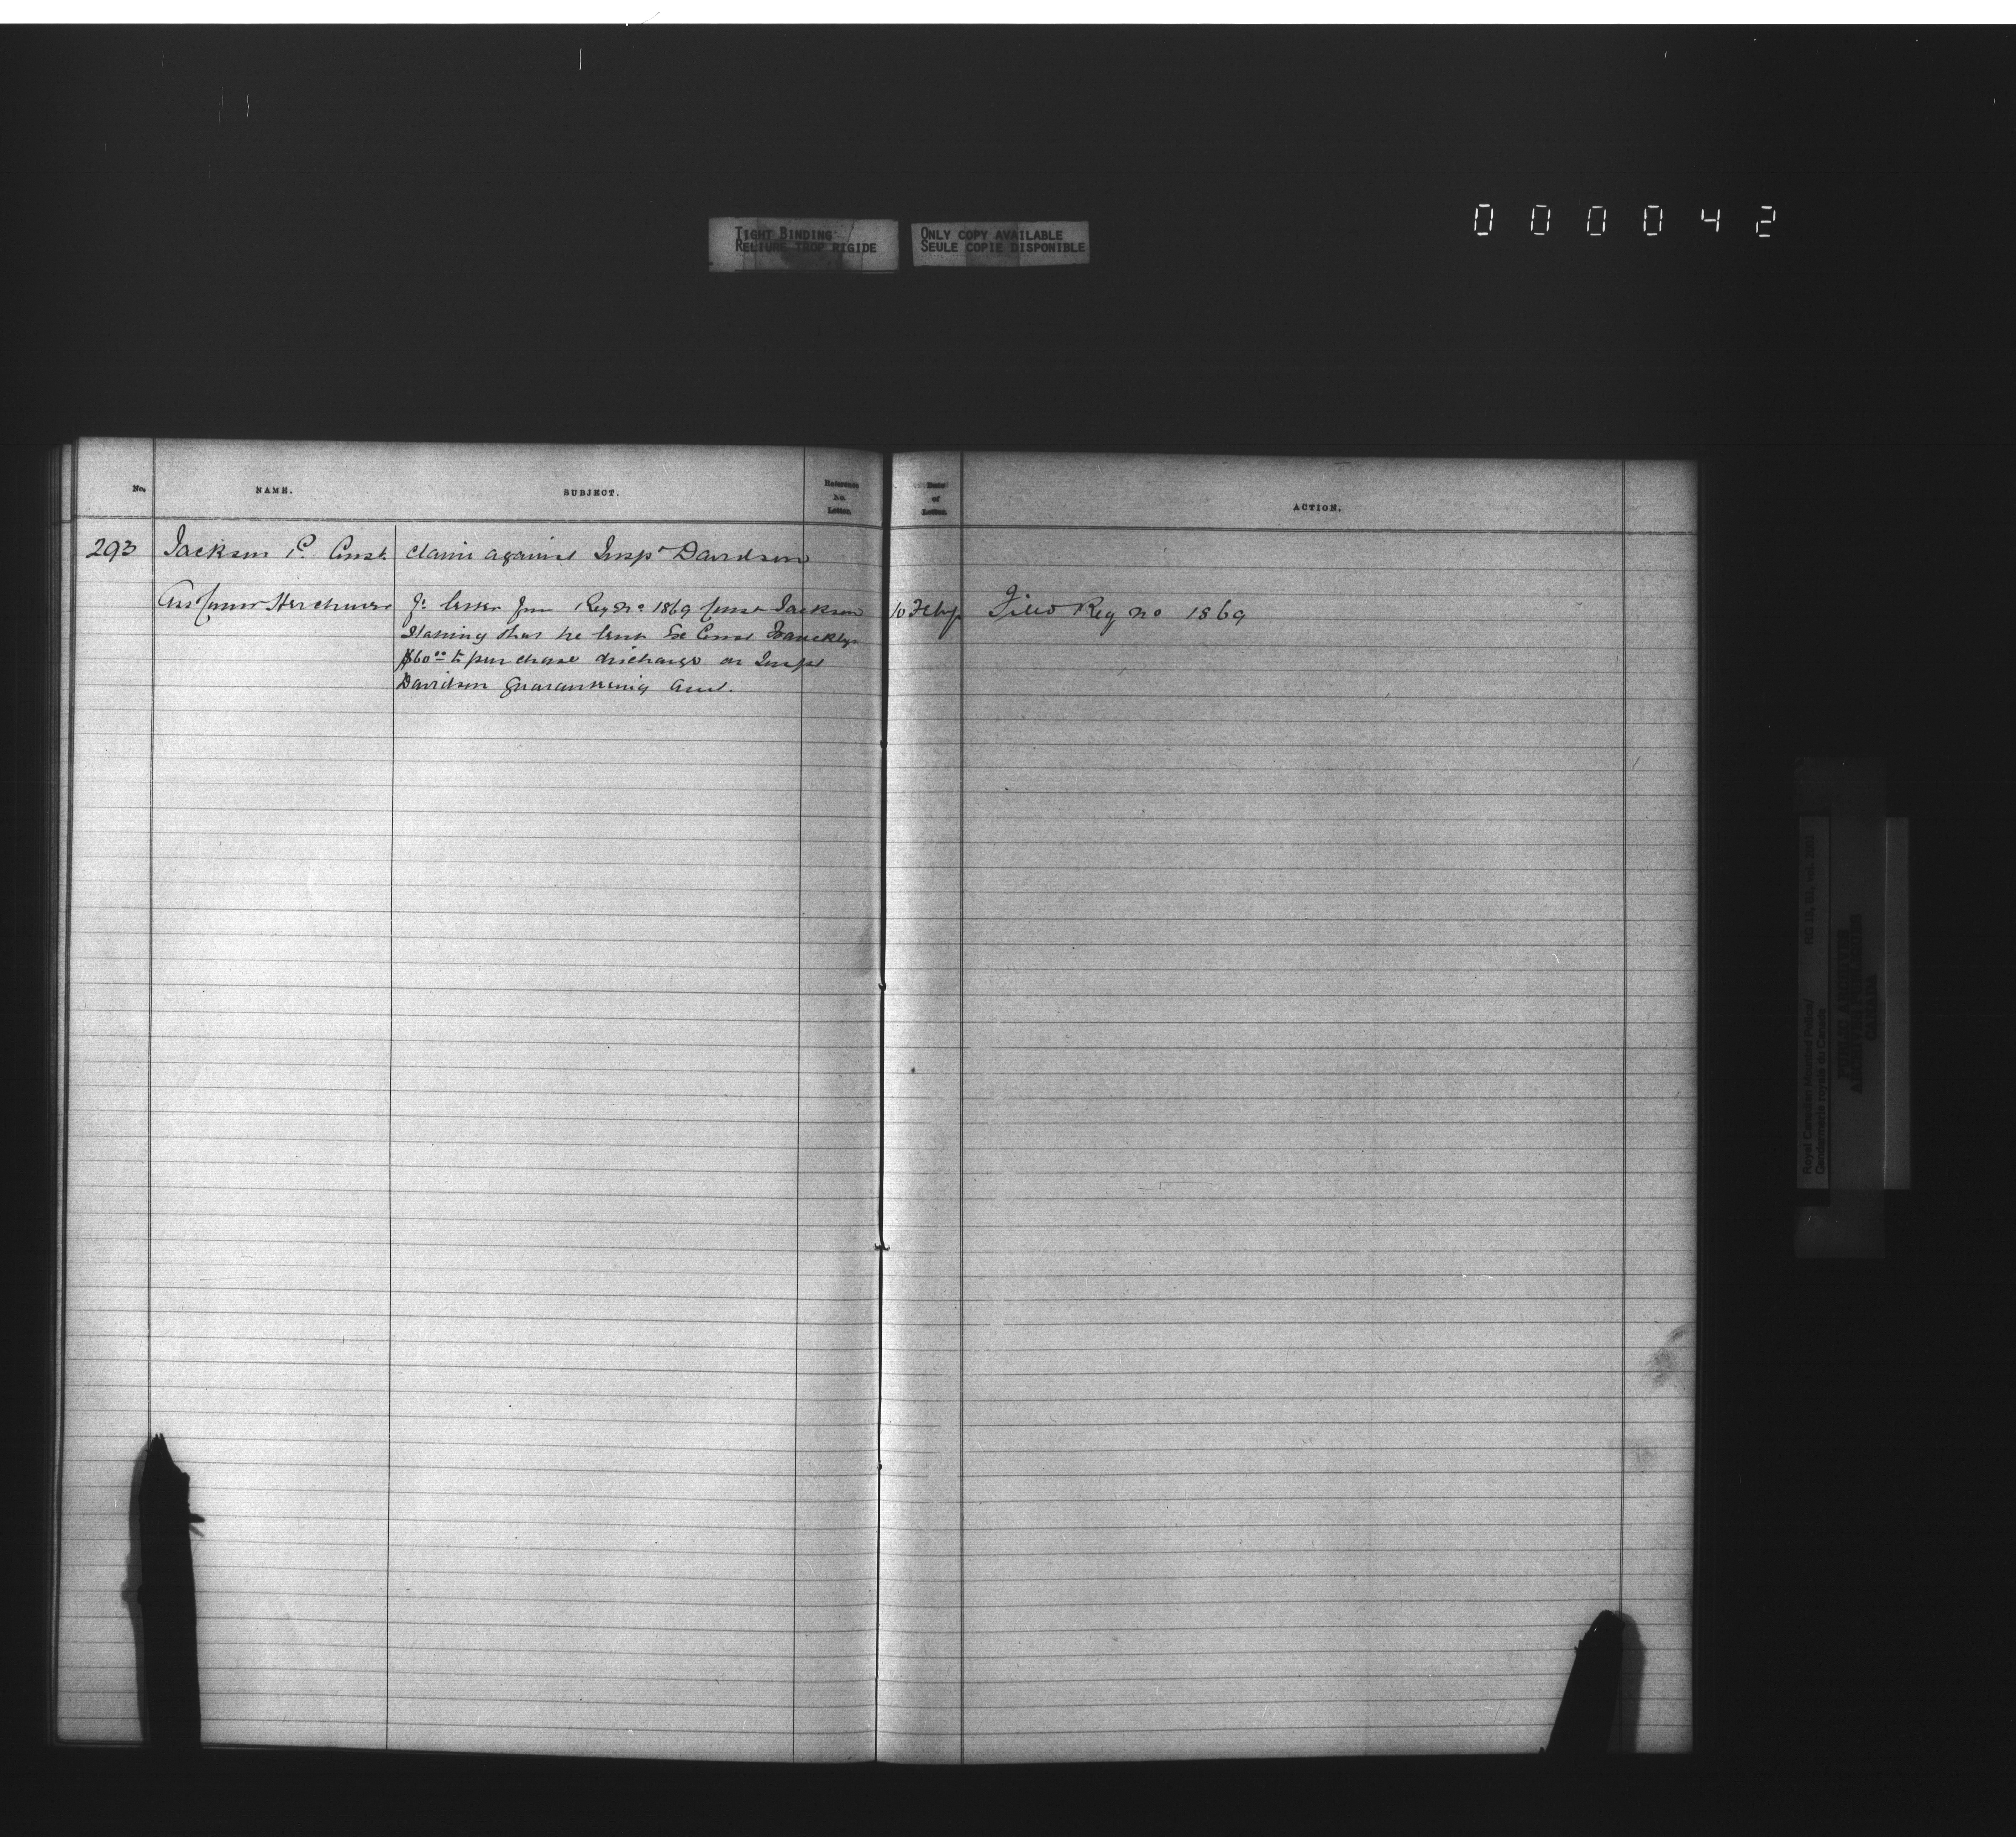 TIGHT BINDING
RELIURE TROP RIGIDE
ONLY COPY AVAILABLE
SEULE COPIE DISPONIBLE
000042
No. NAME. SUBJECT. Reference No. Letter. Date of Letter. ACTION.
293 Jackson P. Const. Claim against Inspr Davidson
Herchmer letter from Reg No 1869 Const Jackson 10 Feby Filed Reg No 1869
Stating that he lent Ex Const
$60.00 to purchase discharge on Inspr
Davidson guaranteeing
Royal Canadian Mounted Police/
Gendarmerie royale du Canada
RG 18, B1, vol.
PUBLIC ARCHIVES
ARCHIVES PUBLIQUES
CANADA